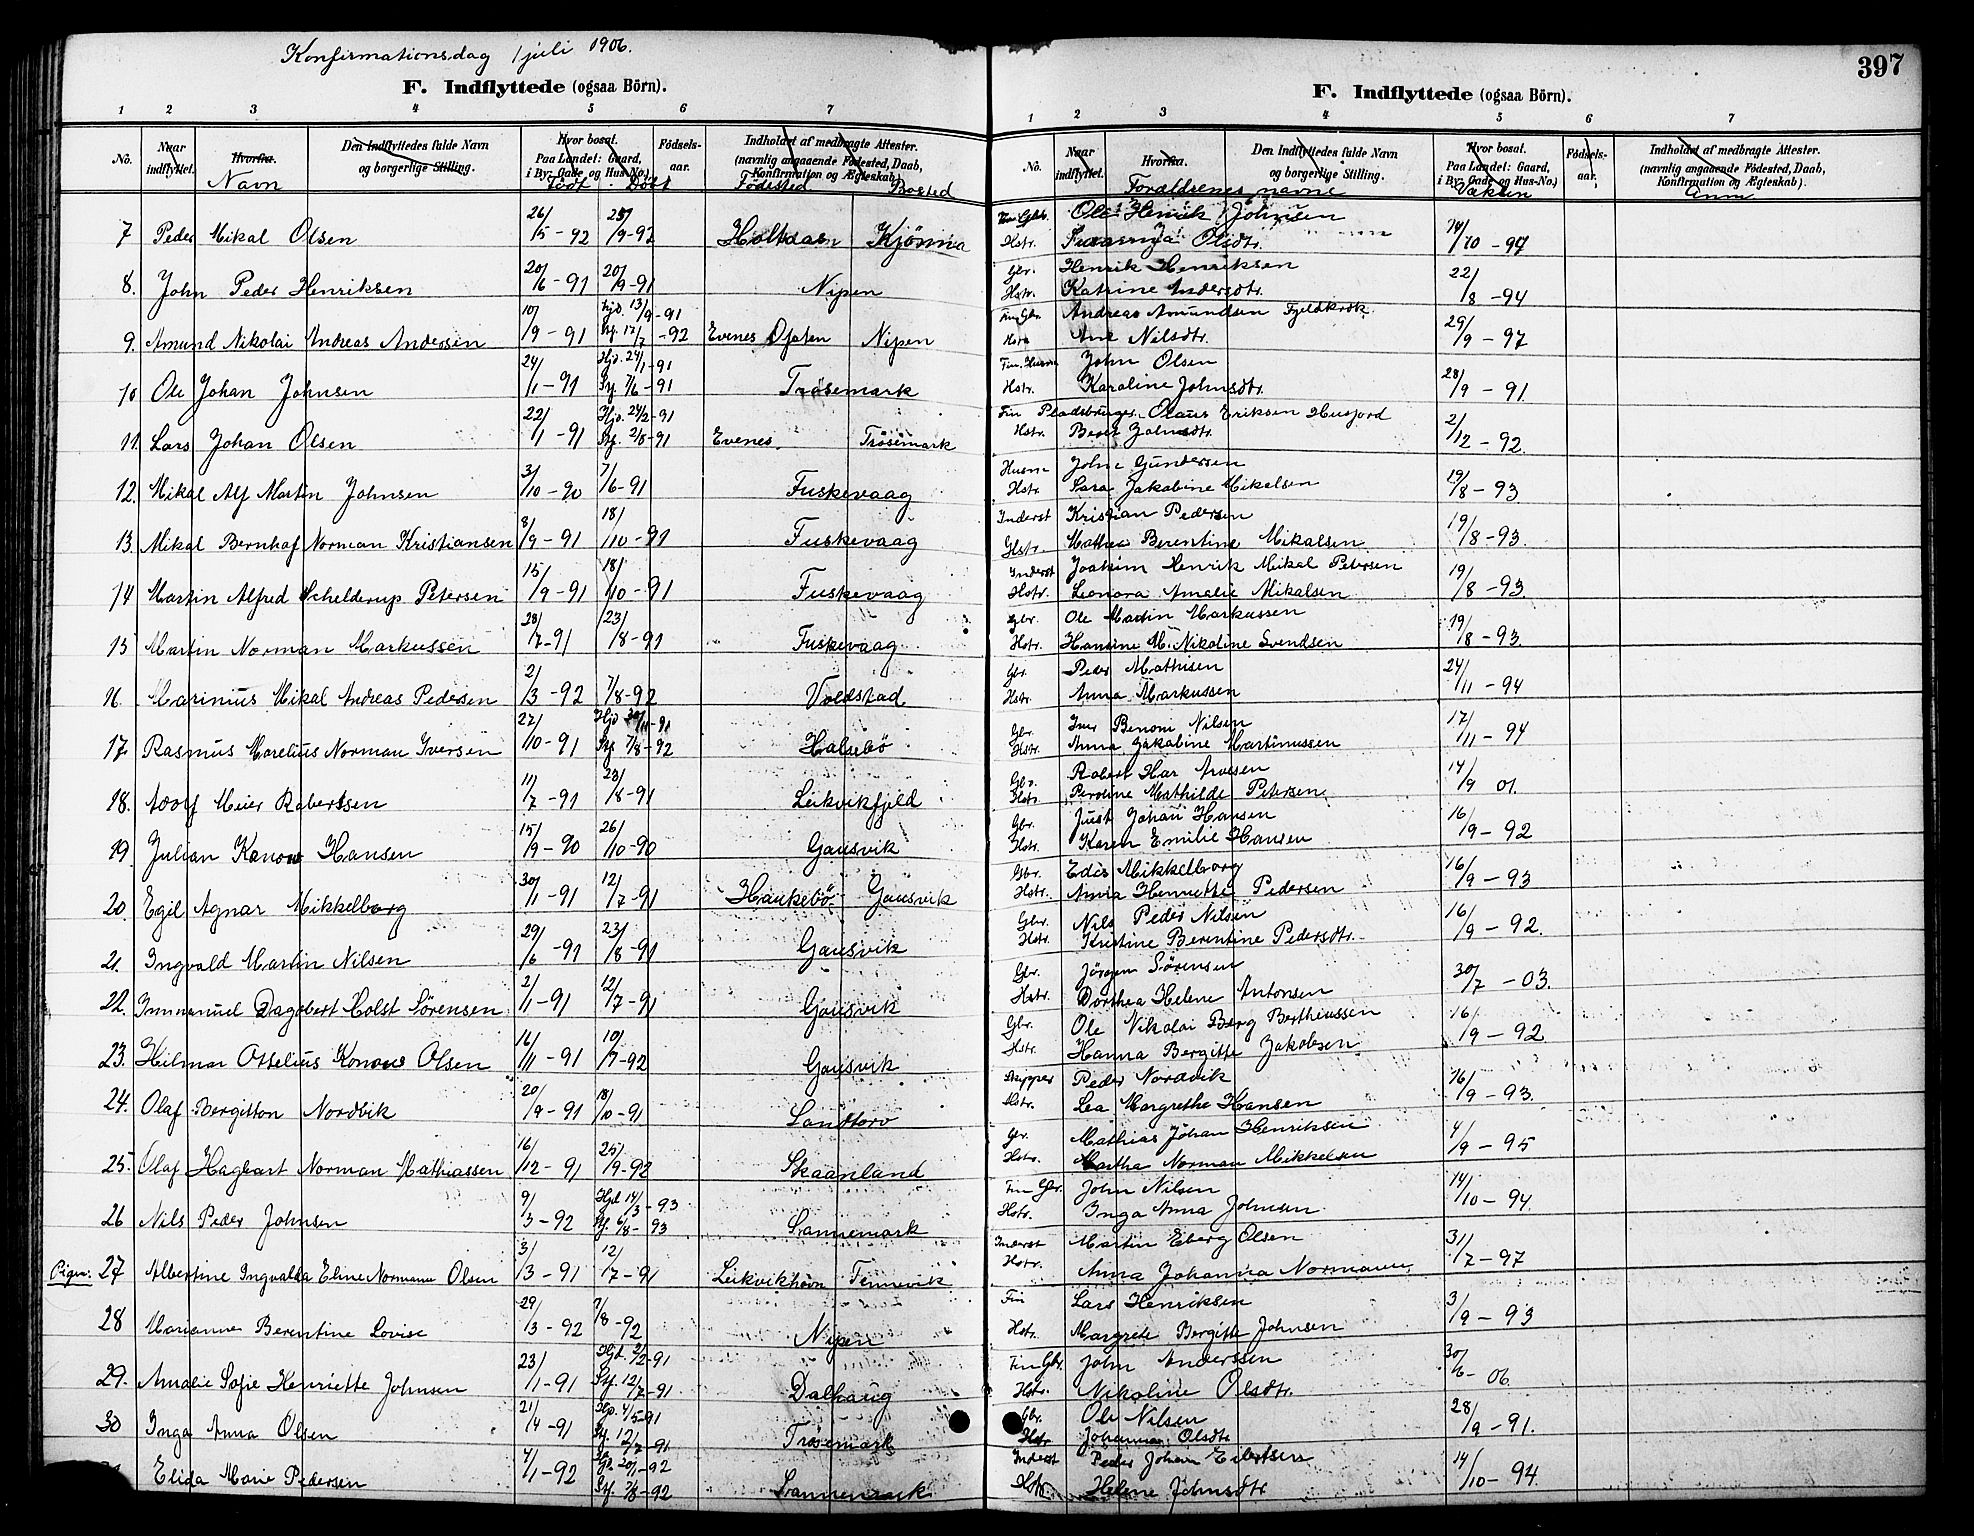 Konfirmationsdag 1 juli 1906.
F. Indflyttede (ogsaa Börn).
1 2 3 4 5 6 7
No. Naar indflyttet. Hvorfra. Den Indflyttedes fulde Navn og borgerlige Stilling. Hvor bosat. Paa Landet: Gaard, i By: Gade og Hus-No.) Fødsels-aar. Indholdet af medbragte Attester. (navnlig angaaende Fødested, Daab, Konfirmation og Ægteskab).
Navn Födt Döbt Födested Bosted
7 Peder Mikal Olsen 26/5-92 25/9-92 Holtdalen Kjönna
8. John Peder Henriksen 20/6-91 20/9-91 Nipen
9. Amund Nikolai Andreas Andersen 10/9-91 Hjd. 13/9-91 Kf. 17/7-92 Evenes Ofoten Nipen
10 Ole Johan Johnsen 24/1-91 Hjd. 24/1-91 Stf. 7/6-91 Trösemark
11. Lars Johan Olsen 22/1-91 Hjd. 24/2-91 Stf. 2/8-91 Evenes Trösemark
12. Mikal Alf Martin Johnsen 3/10-90 7/6-91 Fuskevaag
13. Mikal Bernhof Norman Kristiansen 8/9-91 18/10-91 Fuskevaag
14 Martin Alfred Schelderup Petersen 15/9-91 18/10-91 Fuskevaag
15 Martin Norman Markussen 28/7-91 23/8-91 Fuskevaag
16. Marinius Mikal Andreas Pedersen 2/3-92 7/8-92 Voldstad
17. Rasmus Marelius Norman Iversen 22/10-91 Hjd 29/11-91 Stf 7/8-92 Halsebö
18. Adolf Meier Robertsen 11/7-91 23/8-91 Leikvikfjeld
19. Julian Konow Hansen 15/9-90 26/10-90 Gausvik
20. Egil Agnar Mikkelborg 30/1-91 12/7-91 Haukebö Gausvik
21. Ingvald Martin Nilsen 29/6-91 23/8-91 Gausvik
22. Immanuel Dagobert Holst Sörensen 2/1-91 12/7-91 Gausvik
23. Hilmar Ottelius Konow Olsen 16/11-91 10/7-92 Gausvik
24. Olaf Bergitton Nordvik 20/9-91 18/10-91 Sandtorv
25. Olaf Hagbart Norman Mathiassen 16/12-91 25/9-92 Skaanland
26 Nils Peder Johnsen 9/3-92 Hjd 14/3-93 Stf. 6/8-93 Sannemark
Piger: 27 Albertine Ingvalda Eline Normann Olsen 3/3-91 12/7-91 Leikvikhavn Tennevik
28 Marianne Berentine Lovise 29/3-92 7/8-92 Nipen
29. Amalie Sofie Henriette Johnsen 23/1-91 Hjd. 2/2-91 Stf. 12/7-91 Dalhaug
30 Inga Anna Olsen 21/4-91 Hjd. 4/5-91 Stf. 12/7-91 Trösemark
Elida Marie Pedersen 4/1-92 Hjd. 20/1-92 Stf. 7/8-92 Sannemark
397
F. Indflyttede (ogsaa Börn).
1 2 3 4 5 6 7
No. Naar indflyttet. Hvorfra. Den Indflyttedes fulde Navn og borgerlige Stilling. Hvor bosat. Paa Landet: Gaard, i By: Gade og Hus-No.) Fødsels-aar. Indholdet af medbragte Attester. (navnlig angaaende Fødested, Daab, Konfirmation og Ægteskab).
Forældrenes navne Vaksin Anm
Fin Gbr. Ole Henrik Johnsen
Hstr. Olsdtr. 14/10-97
Gbr. Henrik Henriksen
Hstr. Katrine Andersdtr. 22/8-94
Fin Gbr. Andreas Amundsen Fjeldkrok
Hstr Ane Nilsdtr. 29/9-97
Fin. Husm John Olsen
Hstr. Karoline Johnsdtr. 28/9-91
Fin Pladsbruger Olaus Eriksen Husfjord
Hstr. Beret Johnsdtr. 2/12-92
Husm John Gundersen
Hstr Sara Jakobine Mikelsen 19/8-93
Inderst Kristian Pedersen
Hstr. Mathea Berentine Mikalsen 19/8-93.
Inderst Joakim Henrik Mikal Petersen
Hstr. Leonora Amalie Mikalsen 19/8-93.
Gbr. Ole Martin Markussen
Hstr. Hansine M. Nikoline Svendsen 19/8-93.
Gbr. Peder Mathisen
Hstr. Anna Markussen 24/11-94
Gbr. Iver Benoni Nilsen
Hstr. Anna Jakobine Martinussen 17/11-94
Gbr. Robert Har Arvesen
Hstr Peroline Mathilde Petersen 14/9 01.
Gbr. Just Johan Hansen
Hstr. Karen Emilie Hansen 16/9-92
Gbr. Edis Mikkelborg
Hstr. Anna Henriette Pedersen 16/9-93
Gbr. Nils Peder Nilsen
Hstr. Kristine Berentine Pedersdtr. 16/9-92.
Gbr. Jörgen Sörensen
Hstr. Dorthea Helene Antonsen 30/7-03.
Gbr. Ole Nikolai Berg Berthiussen
Hstr. Hanna Bergitte Jakobsen 16/9-92
Skipper Peder Nordvik
Hstr. Lea Margrethe Hansen 16/9-93.
Gbr. Mathias Johan Henriksen
Hstr. Martha Norman Mikkelsen 4/9-95
Fin Gbr. John Nilsen
Hstr. Inga Anna Johnsen 14/10-94.
Inderst Martin Eberg Olsen
Hstr. Anna Johanna Normann 31/7-97
Fin Lars Henriksen
Hstr. Margrete Bergitte Johnsen 3/9-93
Fin Gbr. John Anderssen
Hstr. Nikoline Olsdtr. 30/6-06.
Gbr. Ole Nilsen
Hstr Johanna Olsdtr 28/9-91.
Inderst Peder Johan Eilertsen
Hstr Helene Johnsdtr 14/10-94.